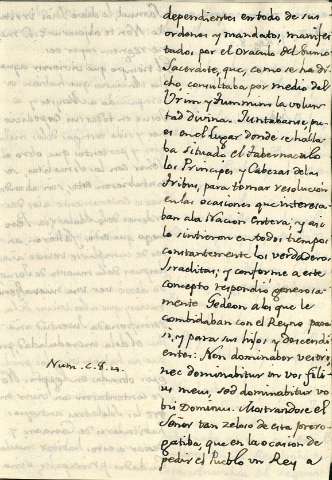 dependientes en todo de sus
ordenes y mandatos, manifes
tados por el Oraculo del Sumo
Sacerdote, que, como se ha di-
cho, consultaba por medio del
Urim y Tummim la volun-
tad divina. Juntabanse, pu-
es en el lugar donde se halla-
ba situado el Tabernaculo
los Principes y Cabezas de las
Tribus, para tomar resolucion
en las ocasiones que interesa-
ban a la Nacion entera; y asi
lo sintieron en todos tiempos
constantemente los verdaderos
Israelitas; y conforme a este
concepto respondió generosa-
mente Gedeon a los que le
combidaban con el Reyno para
si, y para sus hijos y descendi
entes: Non dominabor vestri,
nec dominabitur in vos fili-
us meus, sed dominabitur vo
bis Dominus. Mostrandose el
Señor tan zeloso de esta prero-
gatiba, que en la ocasion de
pedir el Pueblo un Rey a
Num. C. 8.